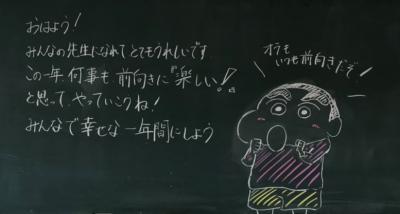 おはよう!
みんなの先生になれてとてもうれしいです
この一年何事も前向きに『楽しい!』
と思って、やっていこうね!
みんなで幸せな一年間にしよう
オラも
いつも前向きだぞ!